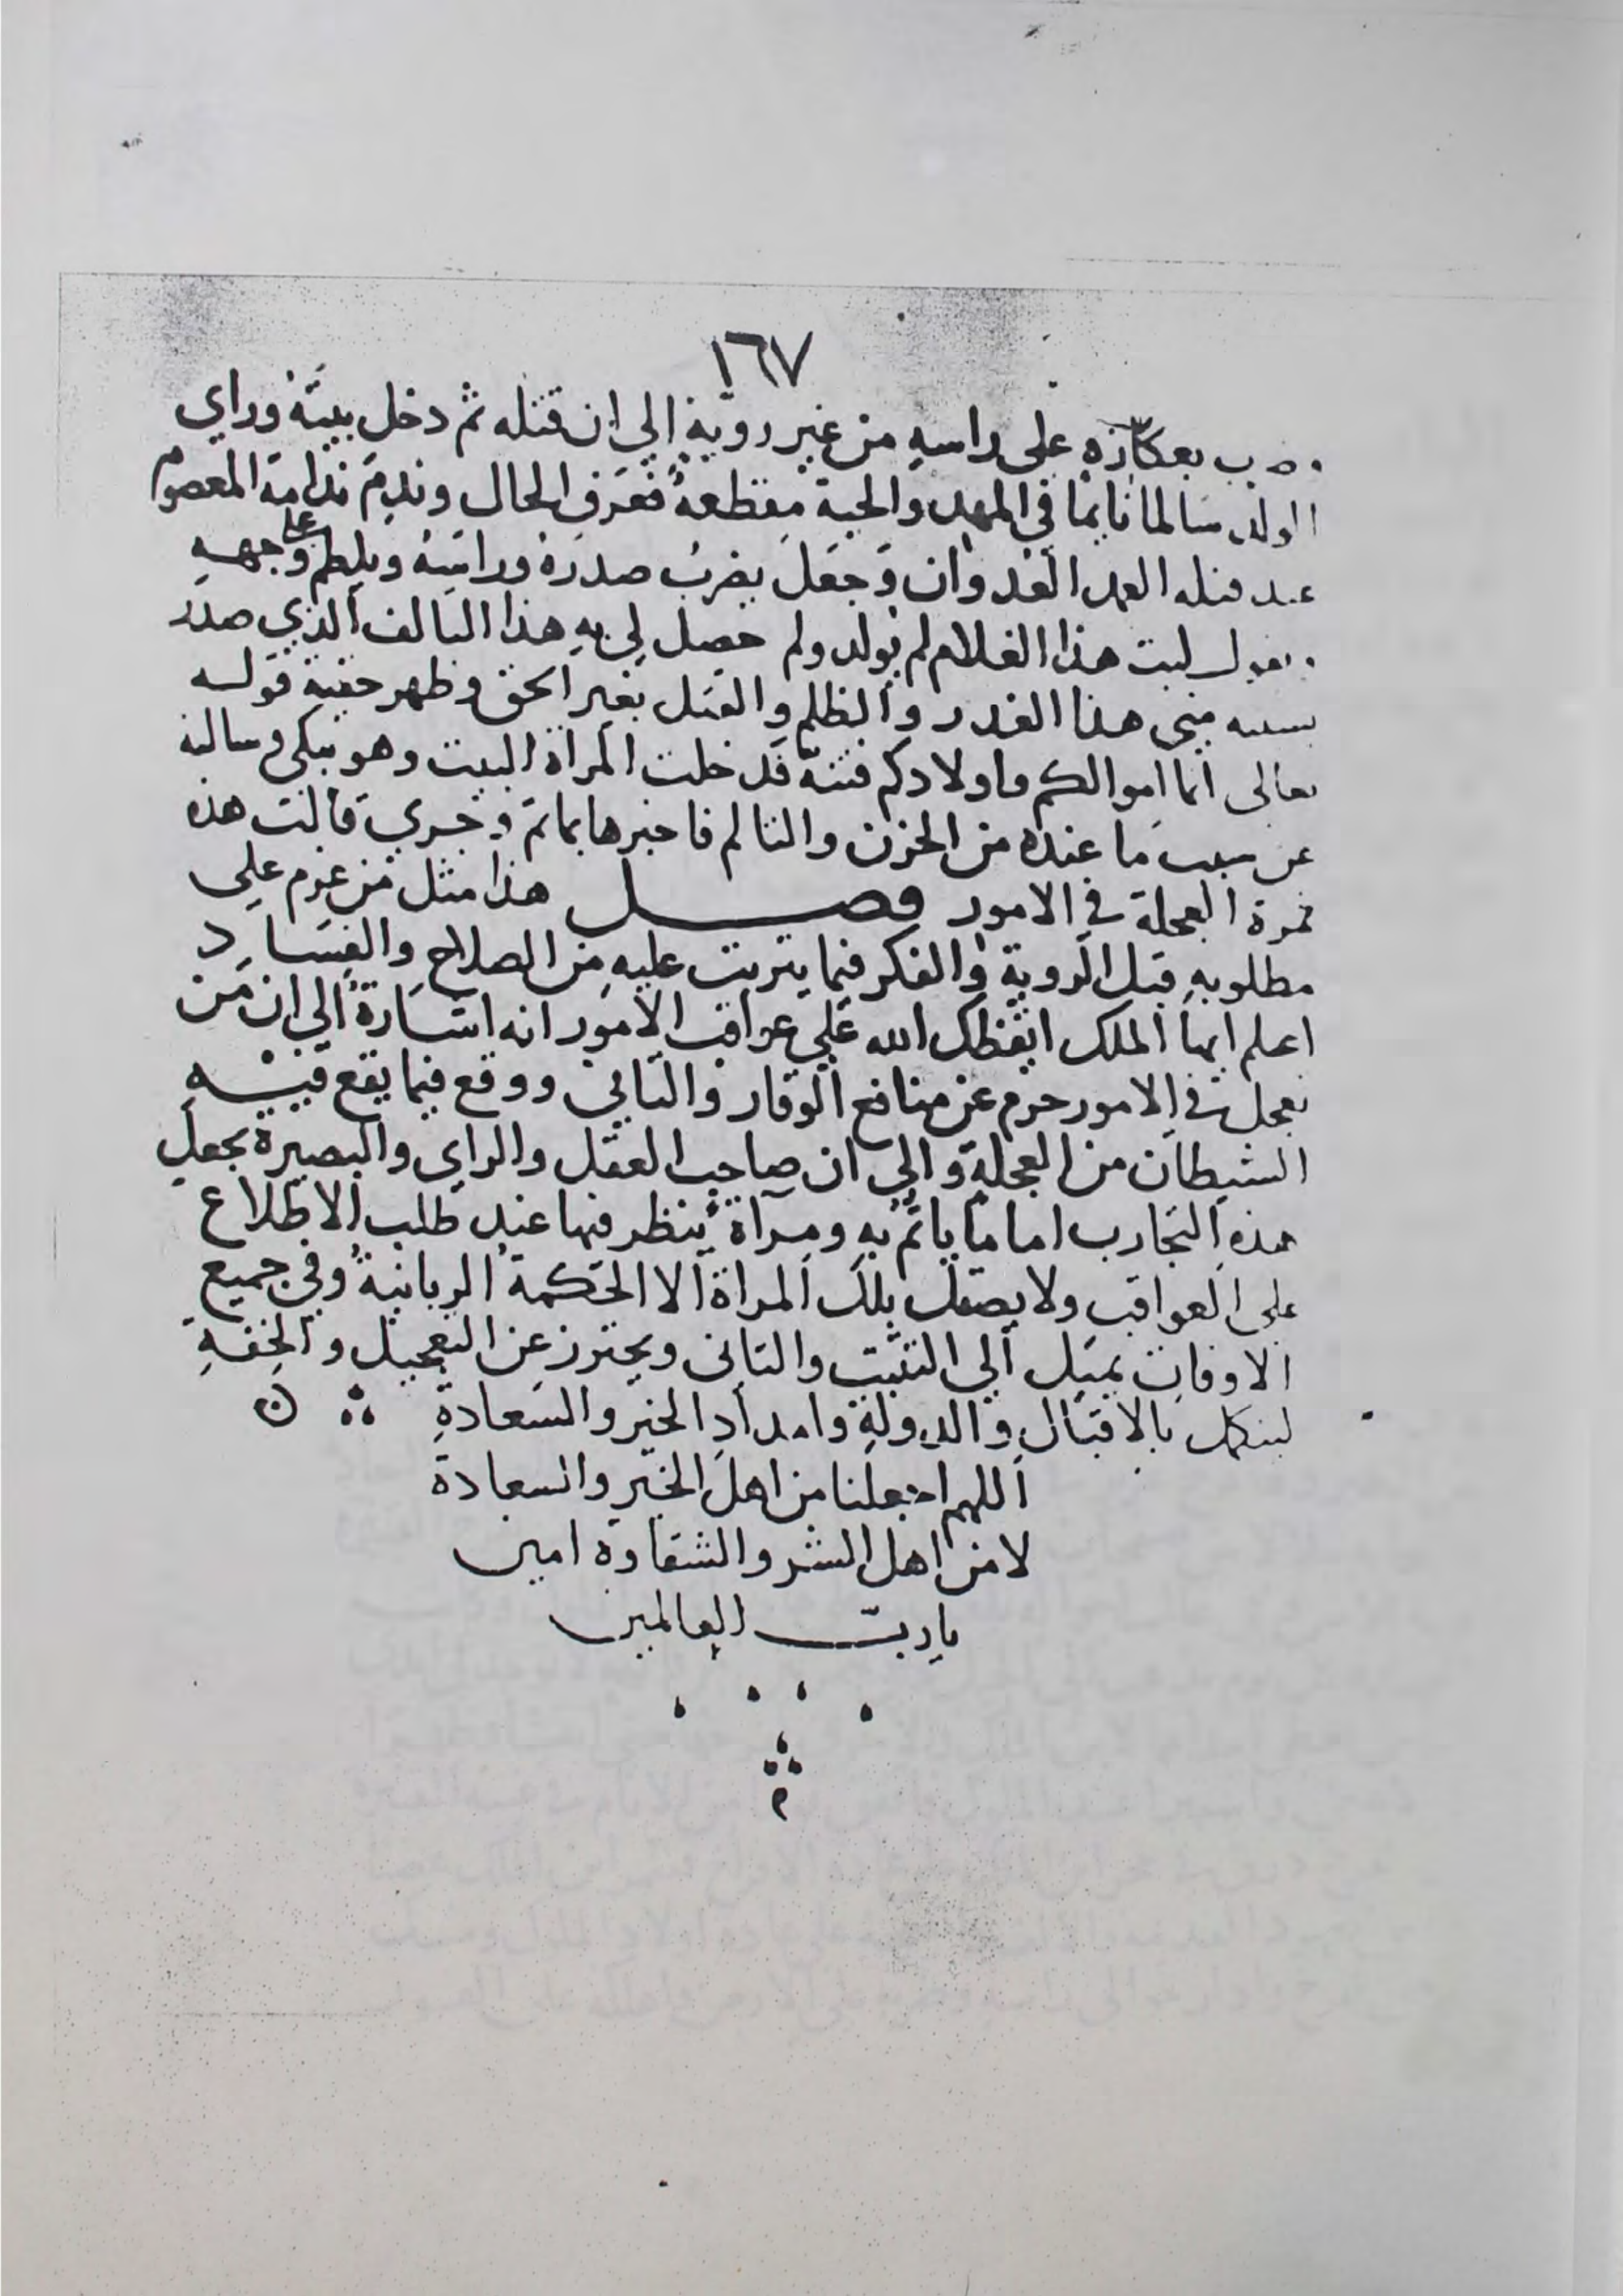 ١٦٧
بعكازه على راسهِ من غير رويّةٍ الي ان قتله ثم دخل بيتَهُ وراي
الولد سَالما نايمًا في المهد والحية مقطعةٌ فعَرف الحال وندِمَ ندامة المعصوم
قتله العمد العدوان وَجعَلَ يضربُ صدرَهُ وراسَهُ ويلطم علا وجههِ
ليت هذا الغلام لم يولد ولم حصل لي بهِ هذا التالف الذي صدر
بسببه مني هذا الغدر والظلم والقتل بغير الحق وظهر حقية قوله
تعالى انما اموالكم واولادكم فتنةٌ فدخلت المراة البيت وهو يبكي وسالته
عن سبب ما عنده من الحزن والتالم فاخبرها بما تم وجري قالت هذه
ثمرة العجلة في الامور فصل هذا مثل من عزم على
مطلوبهِ قبل الروية والفكر فيما يترتب عليهِ من الصلاح والفسَاد
اعلم ايها الملك ايقظك الله علي عواقب الامور انه اشارة الي ان من
تعجل في الامور حرم عن منافع الوقار والتاني ووقع فيما يقع فيهِ
الشيطان من العجلةِ والي ان صاحب العقل والراي والبصيرة يجعل
هذهِ التجارب اماما ياتمُ بهِ ومرآة ينظر فيها عند طلب الاطلاع
على العواقب ولا يصقل بلك المراة الا الحكمة الربانية وفي جميع
الاوقات يميل الي التثبت والتاني ويحترز عن التعجيل والخفةِ
بالاقبَال والدولةِ وامدادِ الخير والسَعادةِ
اللهم اجعلنا من اهل الخير والسعادة
لا من اهل الشر والشقاوة امين
يا ربّ العالمين
م